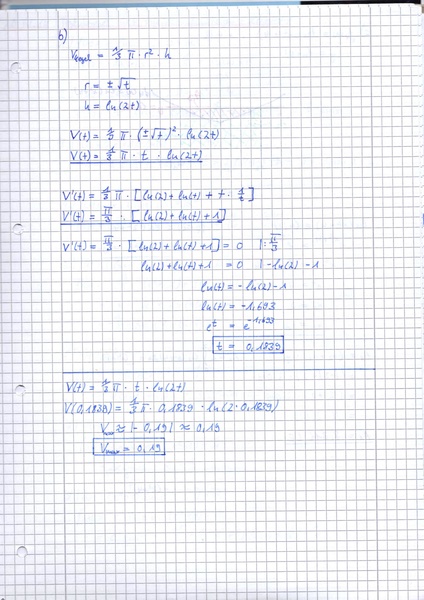 b)
V_Kegel = 1/3 π · r² · h
r = ±√t
h = ln(2t)
V(t) = 1/3 π · (±√t)² · ln(2t)
V(t) = 1/3 π · t · ln(2t)
V'(t) = 1/3 π · [ln(2) + ln(t) + t · 1/t]
V'(t) = π/3 · [ln(2) + ln(t) + 1]
V'(t) = π/3 · [ln(2) + ln(t) + 1] = 0 |: π/3
ln(2) + ln(t) + 1 = 0 | -ln(2) -1
ln(t) = -ln(2) -1
ln(t) = -1,693
e^t = e^-1,693
t = 0,1839
V(t) = 1/3 π · t · ln(2t)
V(0,1839) = 1/3 π · 0,1839 · ln(2·0,1839)
V_max ≈ |-0,19| ≈ 0,19
V_max = 0,19